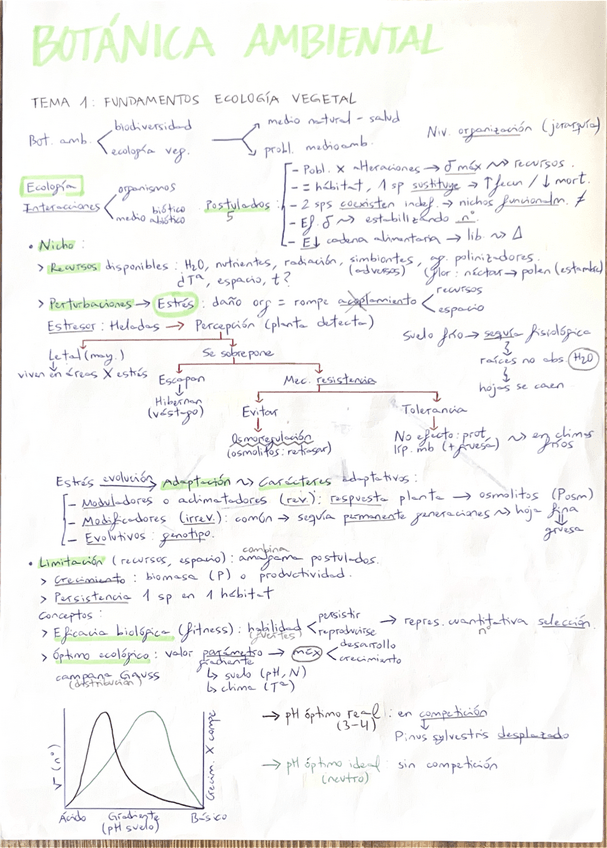 BOTÁNICA AMBIENTAL
TEMA 1: FUNDAMENTOS ECOLOGÍA VEGETAL
Bot. amb. < biodiversidad
ecología veg. → medio natural - salud
probl. medioamb.
Niv. organización (jerarquía)
Ecología
Interacciones < organismos
medio biótico
abiótico
Postulados:
5
- Pobl. X alteraciones → δ máx ⇝ recursos.
- = hábitat, 1 sp sustituye → ↑fecun / ↓ mort.
- 2 sps coexisten indef. → nichos funcionalm. ≠
- Ef. δ ⇝ estabilizando nº.
- E↓ cadena alimentaria → lib. ⇝ Δ
• Nicho:
> Recursos disponibles: H2O, nutrientes, radiación, simbiontes, ag. polinizadores.
(adversos)
dTª, espacio, t?
flor: néctar → polen (estambre)
> Perturbaciones → Estrés: daño org = rompe acoplamiento < recursos
espacio
Estresor: Heladas → Percepción (planta detecta)
Letal (may.)
viven en áreas X estrés
Se sobrepone
Escapan
Hibernan
(vástago)
Mec. resistencia
Evitar
Osmorregulación
(osmolitos: retrasar)
Tolerancia
No efecto: prot.
lip. mb (+ gruesa) ⇝ en climas
fríos
suelo frío → sequía fisiológica
raíces no abs H2O
hojas se caen
Estrés evolución Adaptación ⇝ Carácteres adaptativos:
- Moduladores o aclimatadores (rev.): respuesta planta → osmolitos (Posm)
- Modificadores (irrev.): común → sequía permanente generaciones ⇝ hoja fina
gruesa
- Evolutivos: genotipo.
• Limitación (recursos, espacio): amalgama postulados.
combina
> Crecimiento: biomasa (P) o productividad.
> Persistencia 1 sp en 1 hábitat
Conceptos:
> Eficacia biológica (fitness): habilidad < persistir
reproducirse → repres. cuantitativa selección.
nº
> Óptimo ecológico: valor parámetro → máx < desarrollo
crecimiento
gradiente
campana Gauss
(distribución)
↳ suelo (pH, N)
↳ clima (Tª)
V (nº)
Crecim. X compe
Ácido Gradiente Básico
(pH suelo)
→ pH óptimo real: en competición
(3-4)
Pinus sylvestris desplazado
→ pH óptimo ideal: sin competición
(neutro)